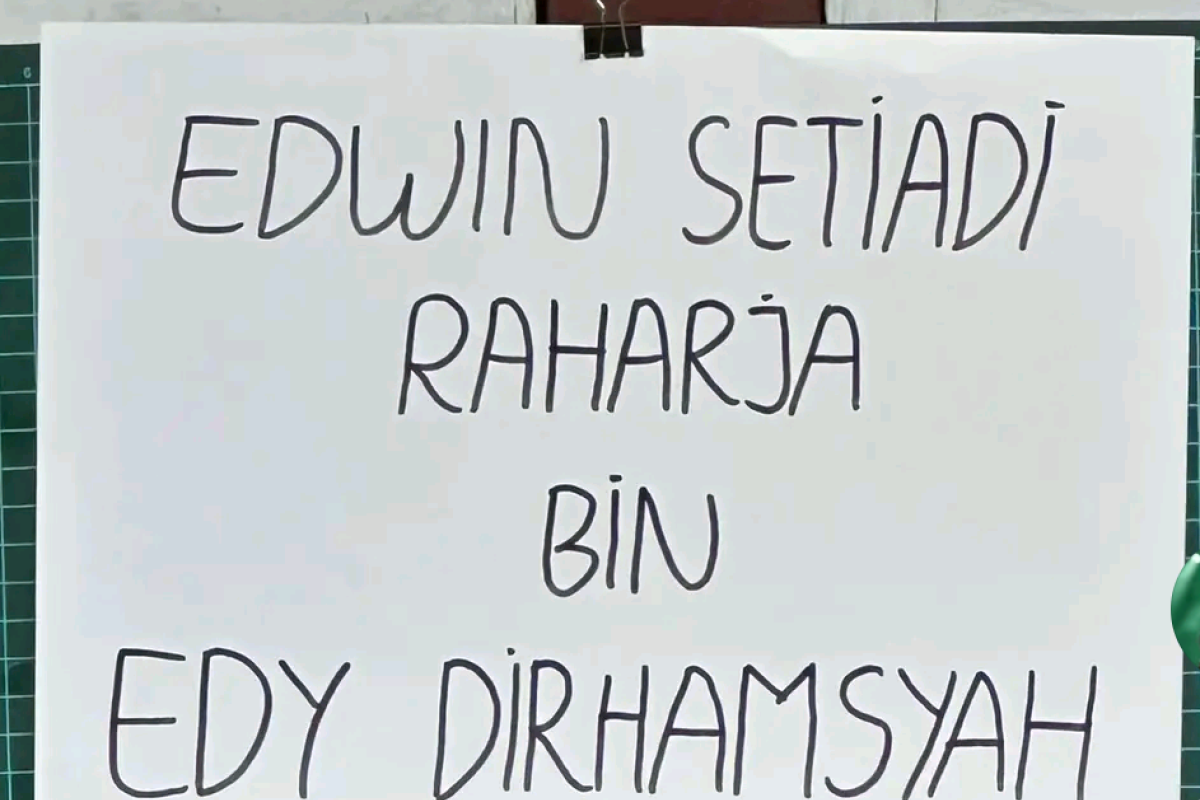 EDWIN SETIADI
RAHARJA
BIN
EDY DIRHAMSYAH